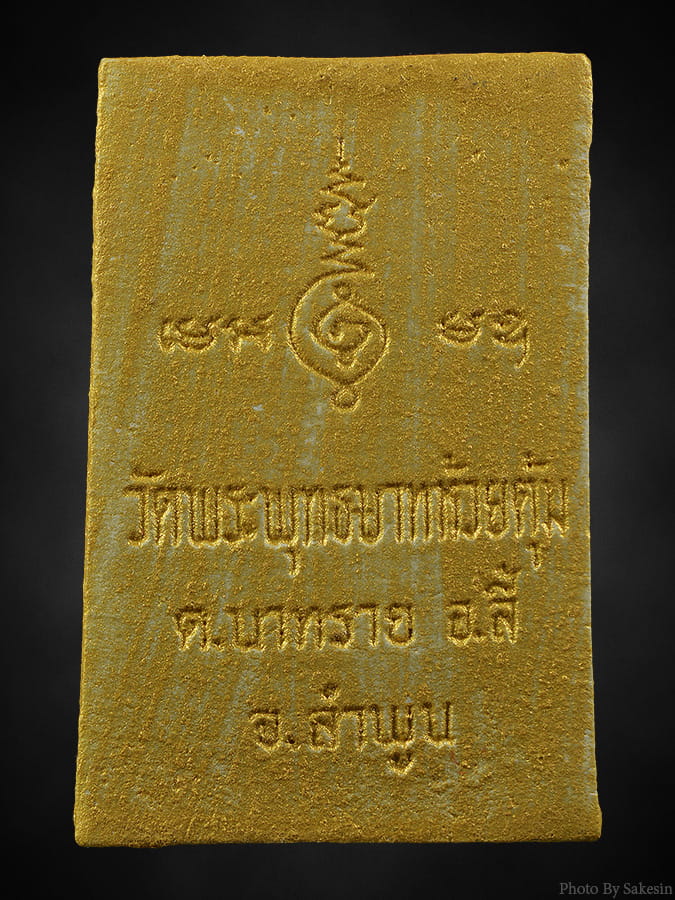 วัดพระพุทธบาทห้วยต้ม
ต.นาทราย อ.ลี้
จ.ลำพูน
Photo By Sakesin